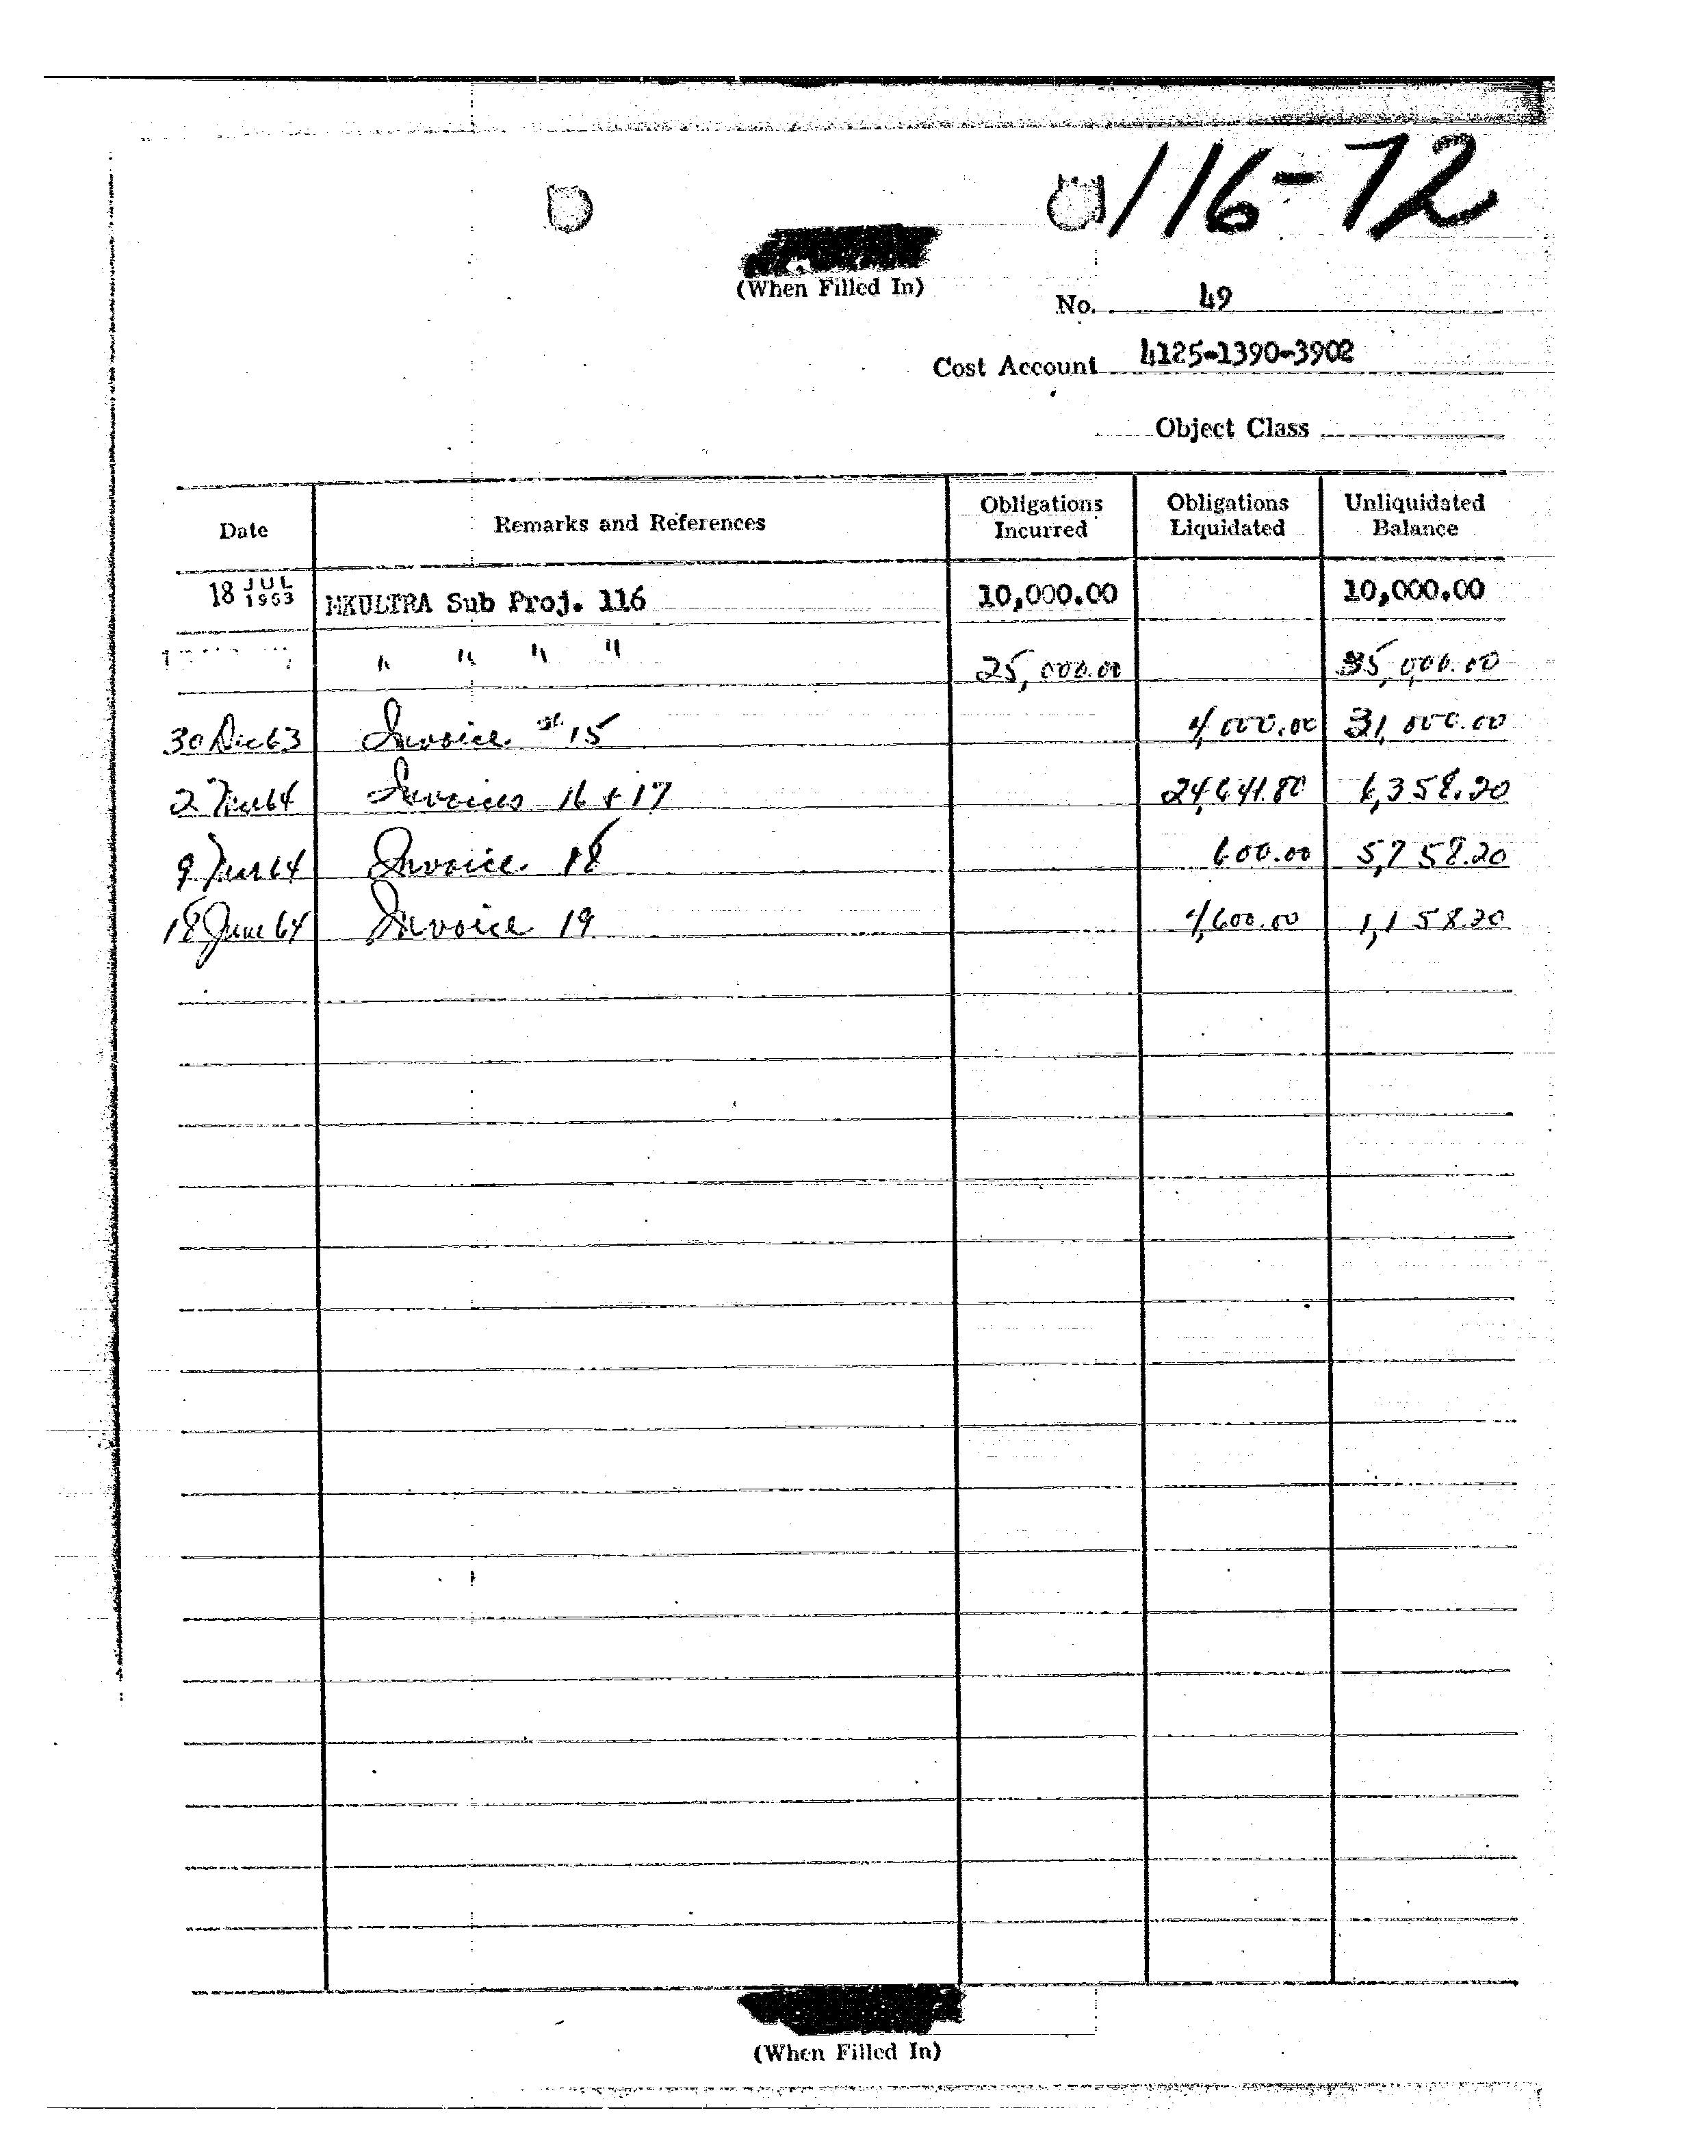 116-72
(When Filled In)
No. 49
Cost Account 4125-1390-3902
Object Class
Date Remarks and References Obligations Incurred Obligations Liquidated Unliquidated Balance
18 JUL 1963 MKULTRA Sub Proj. 116 10,000.00 10,000.00
" " " " 25,000.00 35,000.00
30 Dec 63 Invoice # 15 4,000.00 31,000.00
2 64 Invoices 16 + 17 24,641.80 6,358.20
9 64 Invoice 18 600.00 5,758.20
18 June 64 Invoice 19 4,600.00 1,158.20
(When Filled In)